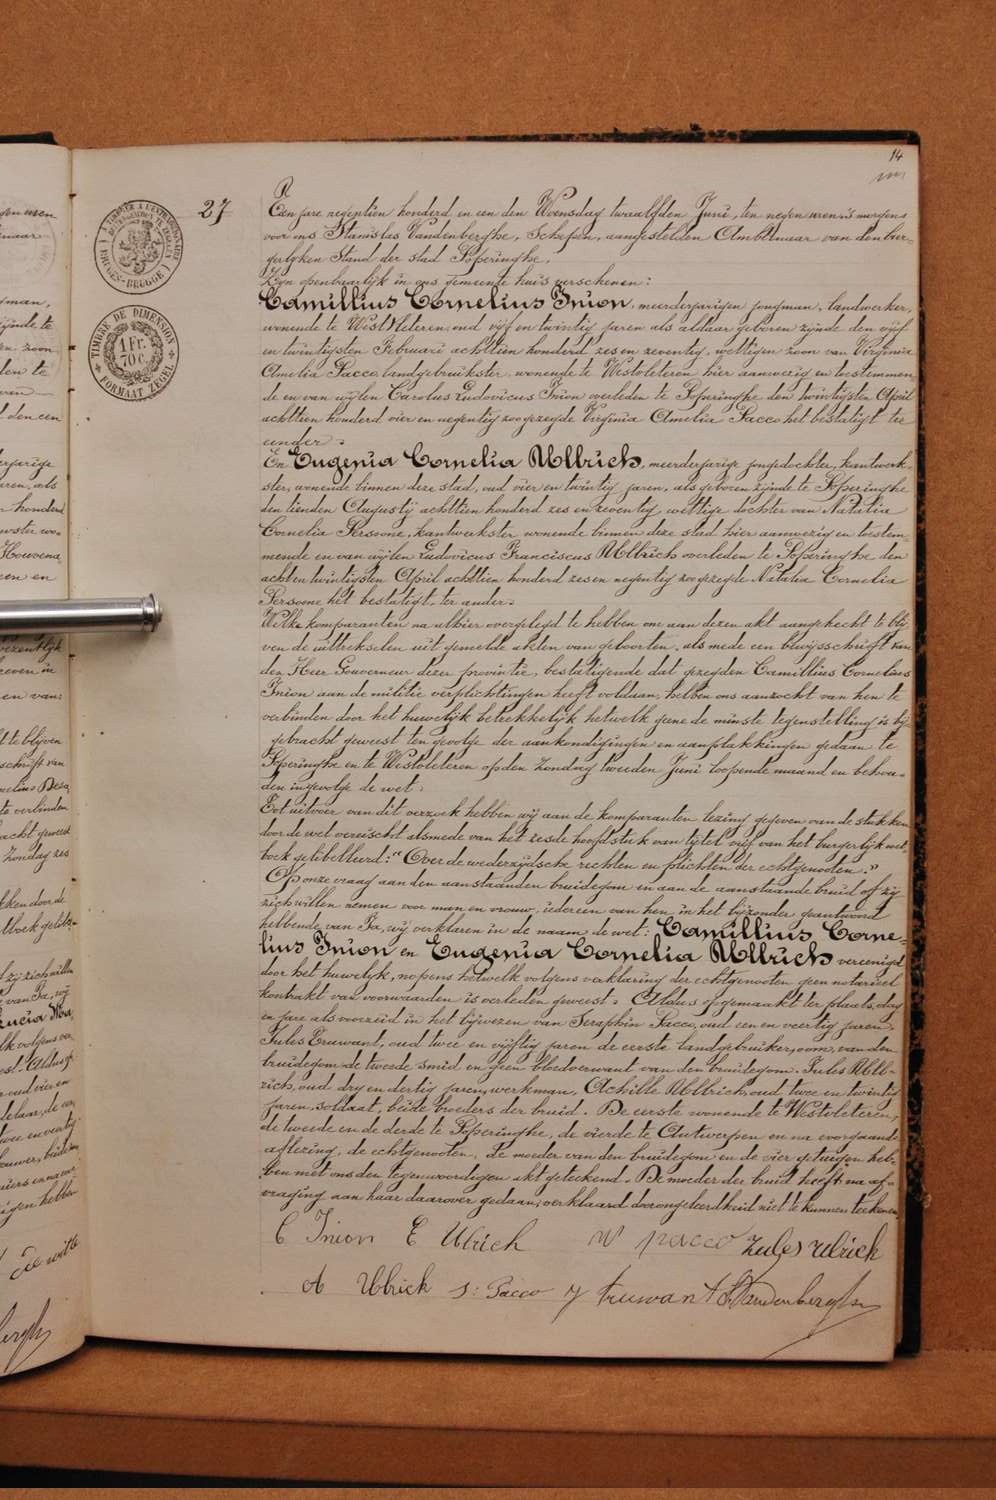 14
27
TIMBRE A L'EXTRAORDINAIRE
BRUGES-BRUGGE
TIMBRE DE DIMENSION
1 Fr.
70 c.
FORMAAT ZEGEL
Een jare negentien honderd en een den Woensdag twaalfden Juni, ten negen uren 's morgens
voor ons Stanislas Vandenberghe, Schepen, aangestelden Ambtenaar van den bur-
gerlyken Stand der stad Poperinghe.
Zyn openbaarlyk in ons gemeente huis verschenen:
Camillius Cornelius Inion, meerderjarigen jongman, landwerker,
wonende te Westvleteren, oud vijf en twintig jaren als aldaar geboren zijnde den vijf
en twintigsten Februari achttien honderd zes en zeventig, wettigen zoon van Virginia
Amelia Pacco landgebruikster wonende te Westvleteren hier aanwezig en toestemmen
de en van wijlen Carolus Ludovicus Inion overleden te Poperinghe den twintigsten April
achttien honderd vier en negentig zoo gezegde Virginia Amelia Pacco het bestatigt ter
eender.
En Eugenia Cornelia Ullrich, meerderjarige jongedochter, kantwerk-
ster, wonende binnen deze stad, oud vier en twintig jaren, als geboren zijnde te Poperinghe
den tienden Augusty achttien honderd zes en zeventig wettige dochter van Natalia
Cornelia Persoone, kantwerkster wonende binnen deze stad hier aanwezig en toestem-
mende en van wijlen Ludovicus Franciscus Ullrich overleden te Poperinghe den
acht en twintigsten April achttien honderd zes en negentig zoo gezegde Natalia Cornelia
Persoone het bestatigt, ter ander.
Welke komparanten na alhier overgelegd te hebben om aan dezen akt aangehecht te blij
ven de uittrekselen uit gemelde akten van geboorten, alsmede een bewijsschrift van
den Heer Gouverneur dezer provintie, bestatigende dat gezegden Camillius Cornelius
Inion aan de militie verplichtingen heeft voldaan, hebben ons aanzocht van hen te
verbinden door het huwelijk betrekkelijk hetwelk geene de minste tegenstelling is bij
gebracht geweest ten gevolge der aankondigingen en aanplakkingen gedaan te
Poperinghe en te Westvleteren op den Zondag tweeden Juni loopende maand en behou-
den ingevolge de wet.
Tot uitvoer van dit verzoek hebben wij aan de komparanten lezing gegeven van de stukken
door de wet vereischt alsmede van het zesde hoofdstuk van tijtel vijf van het burgerlijk wet-
boek gelibelleerd: "Over de wederzijdsche rechten en plichten der echtgenooten."
Op onze vraag aan den aanstaanden bruidegom en aan de aanstaande bruid of zij
zich willen nemen voor man en vrouw, iedereen van hen in het bijzonder geantwoord
hebbende van Ja, wij verklaren in de naam de wet: Camillius Corne-
lius Inion en Eugenia Cornelia Ullrich vereenigd
door het huwelyk, nopens hetwelk volgens verklaring der echtgenooten geen notarieel
kontrakt van voorwaarden is verleden geweest. Aldus opgemaakt ter plaats, dag
en jare als voorzeid in het bijwezen van Seraphin Pacco, oud een en veertig jaren,
Jules Truwant, oud twee en vijftig jaren de eerste landgebruiker, oom van den
bruidegom de tweede smid en geen bloedverwant van den bruidegom. Jules Ull-
rich, oud dry en dertig jaren, werkman, Achille Ullrich, oud twee en twintig
jaren, soldaat, beide broeders der bruid. De eerste wonende te Westvleteren,
de tweede en de derde te Poperinghe, de vierde te Antwerpen en na voorgaande
aflezing, de echtgenooten, de moeder van den bruidegom en de vier getuigen heb-
ben met ons den tegenwoordigen akt geteekend. De moeder der bruid heeft na af-
vraging aan haar daarover gedaan, verklaard door ongeleerdheid niet te kunnen teekenen
C Inion E Ulrich W pacco Zules Ulrich
A Ulbrick S: Pacco J truwant S Vandenberghe